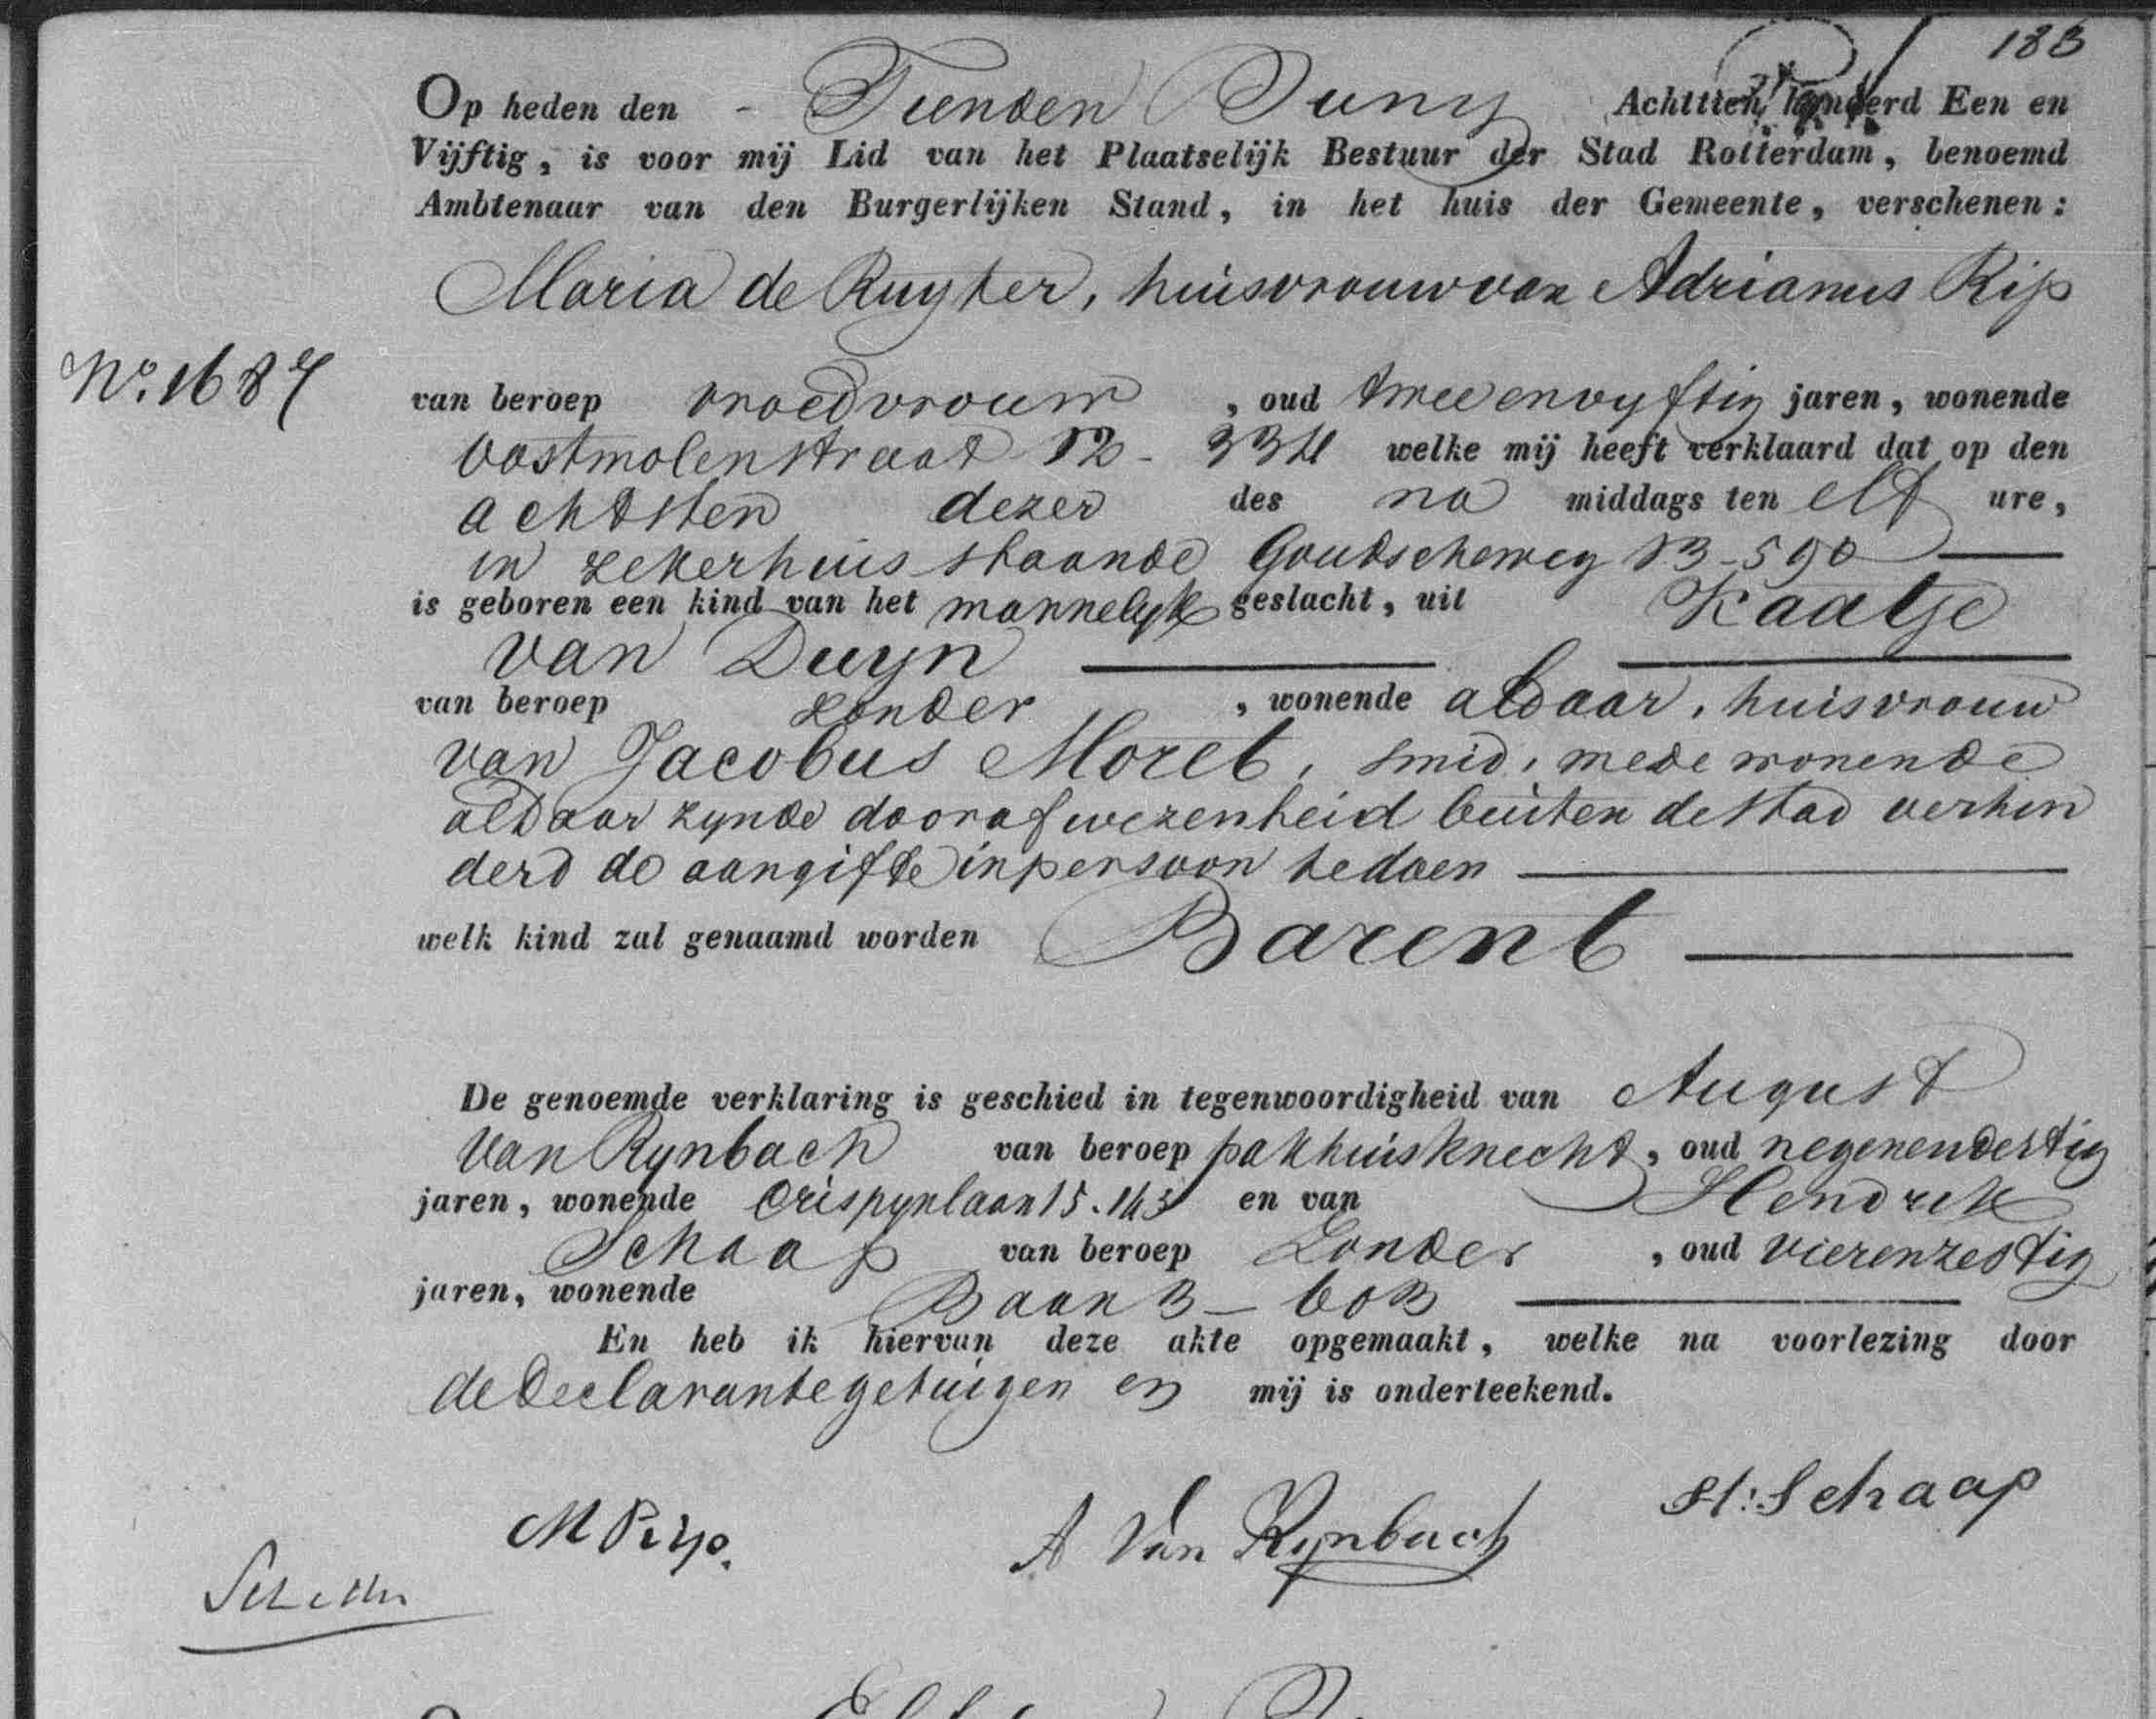 183
Op heden den - Tienden Juny Achttien honderd Een en
Vijftig, is voor mij Lid van het Plaatselijk Bestuur der Stad Rotterdam, benoemd
Ambtenaar van den Burgerlijken Stand, in het huis der Gemeente, verschenen:
Maria de Ruyter, huisvrouw van Adrianus Rip
No. 1687
van beroep vroedvrouw, oud twee en vyftig jaren, wonende
Oostmolenstraat 12 - 334 welke mij heeft verklaard dat op den
achtsten dezer des na middags ten elf ure,
in zeker huis staande Goudscheweg 13 - 590
is geboren een kind van het mannelyk geslacht, uit Kaatje
van Duyn
van beroep zonder, wonende aldaar, huisvrouw
van Jacobus Moret, smid, mede wonende
aldaar zynde door afwezenheid buiten de stad verhin
derd de aangifte in persoon te doen
welk kind zal genaamd worden Barent
De genoemde verklaring is geschied in tegenwoordigheid van August
van Rynbach van beroep pakhuisknecht, oud negenendertig
jaren, wonende Crispynlaan 15. 143 en van Hendrik
Schaap van beroep Zonder, oud vierenzestig
jaren, wonende Baan 3 - 603
En heb ik hiervan deze akte opgemaakt, welke na voorlezing door
de Declarante getuigen en mij is onderteekend.
M Rip.
A Van Rynbach
H: Schaap